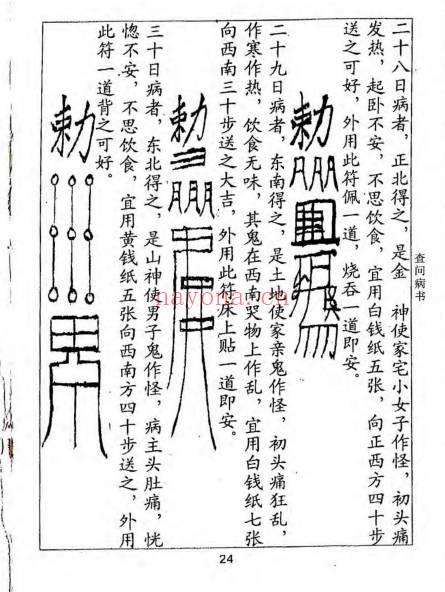 二十八日病者，正北得之，是金　神使家宅小女子作怪，初头痛
发热，起卧不安，不思饮食，宜用白钱纸五张，向正西方四十步
送之可好，外用此符佩一道，烧吞一道即安。
二十九日病者，东南得之，是土地使家亲鬼作怪，初头痛狂乱，
作寒作热，饮食无味，其鬼在西南哭物上作乱，宜用白钱纸七张
向西南三十步送之大吉，外用此符床上贴一道即安。
三十日病者，东北得之，是山神使男子鬼作怪，病主头肚痛，恍
惚不安，不思饮食，宜用黄钱纸五张向西南方四十步送之，外用
此符一道背之可好。
敕
敕
敕
查问病书
nayona.cn
24